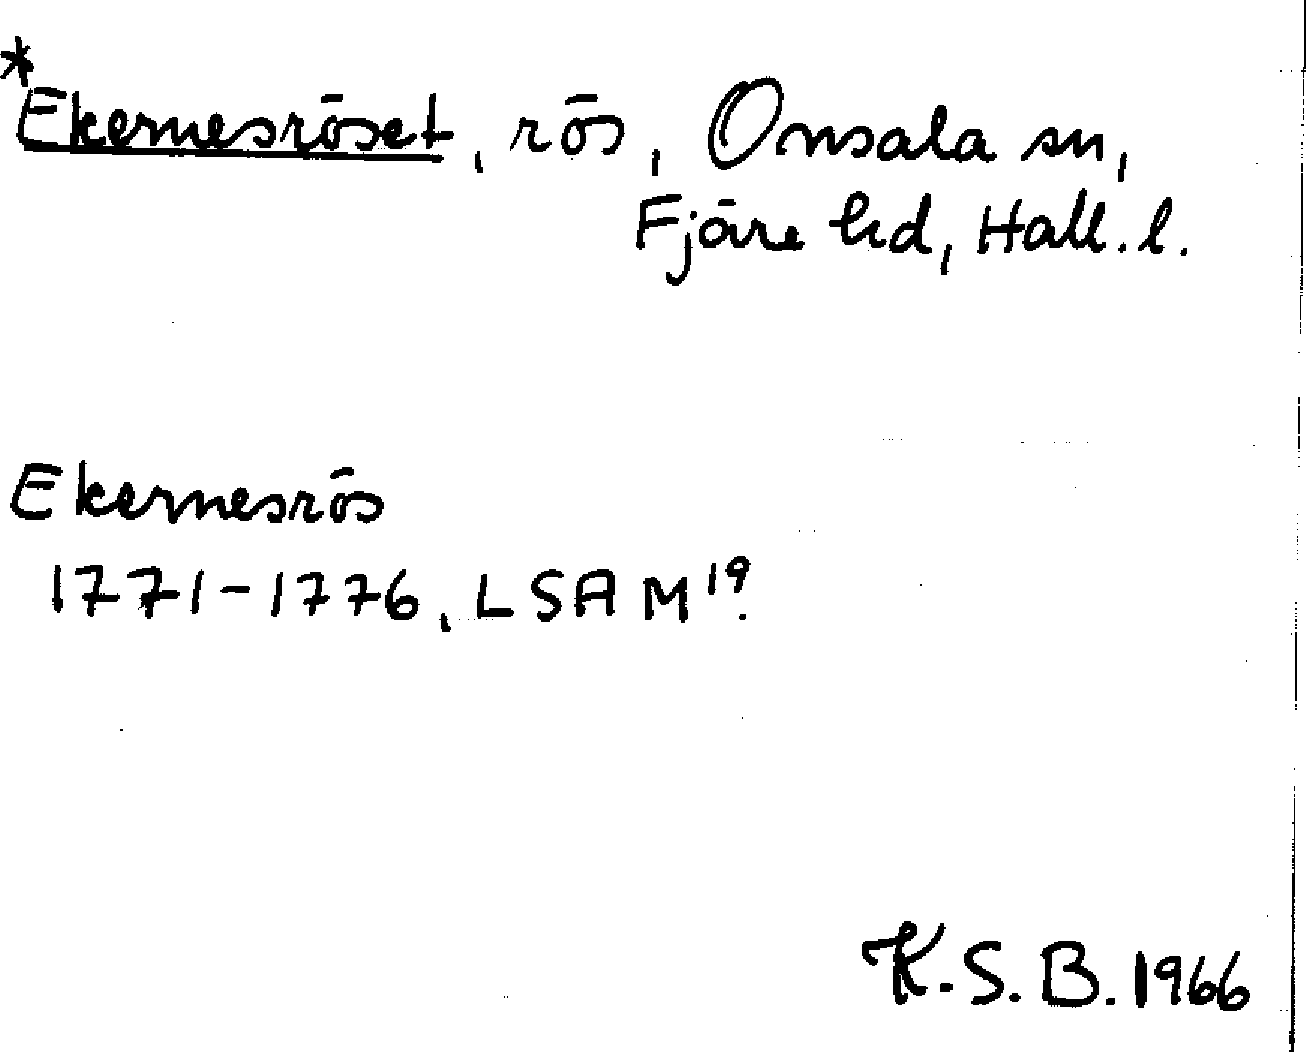 *Ekernesröset, rös, Onsala sn,
Fjäre hd, Hall. l.
Ekernesrös
1771-1776, LSA M19.
K.S.B. 1966